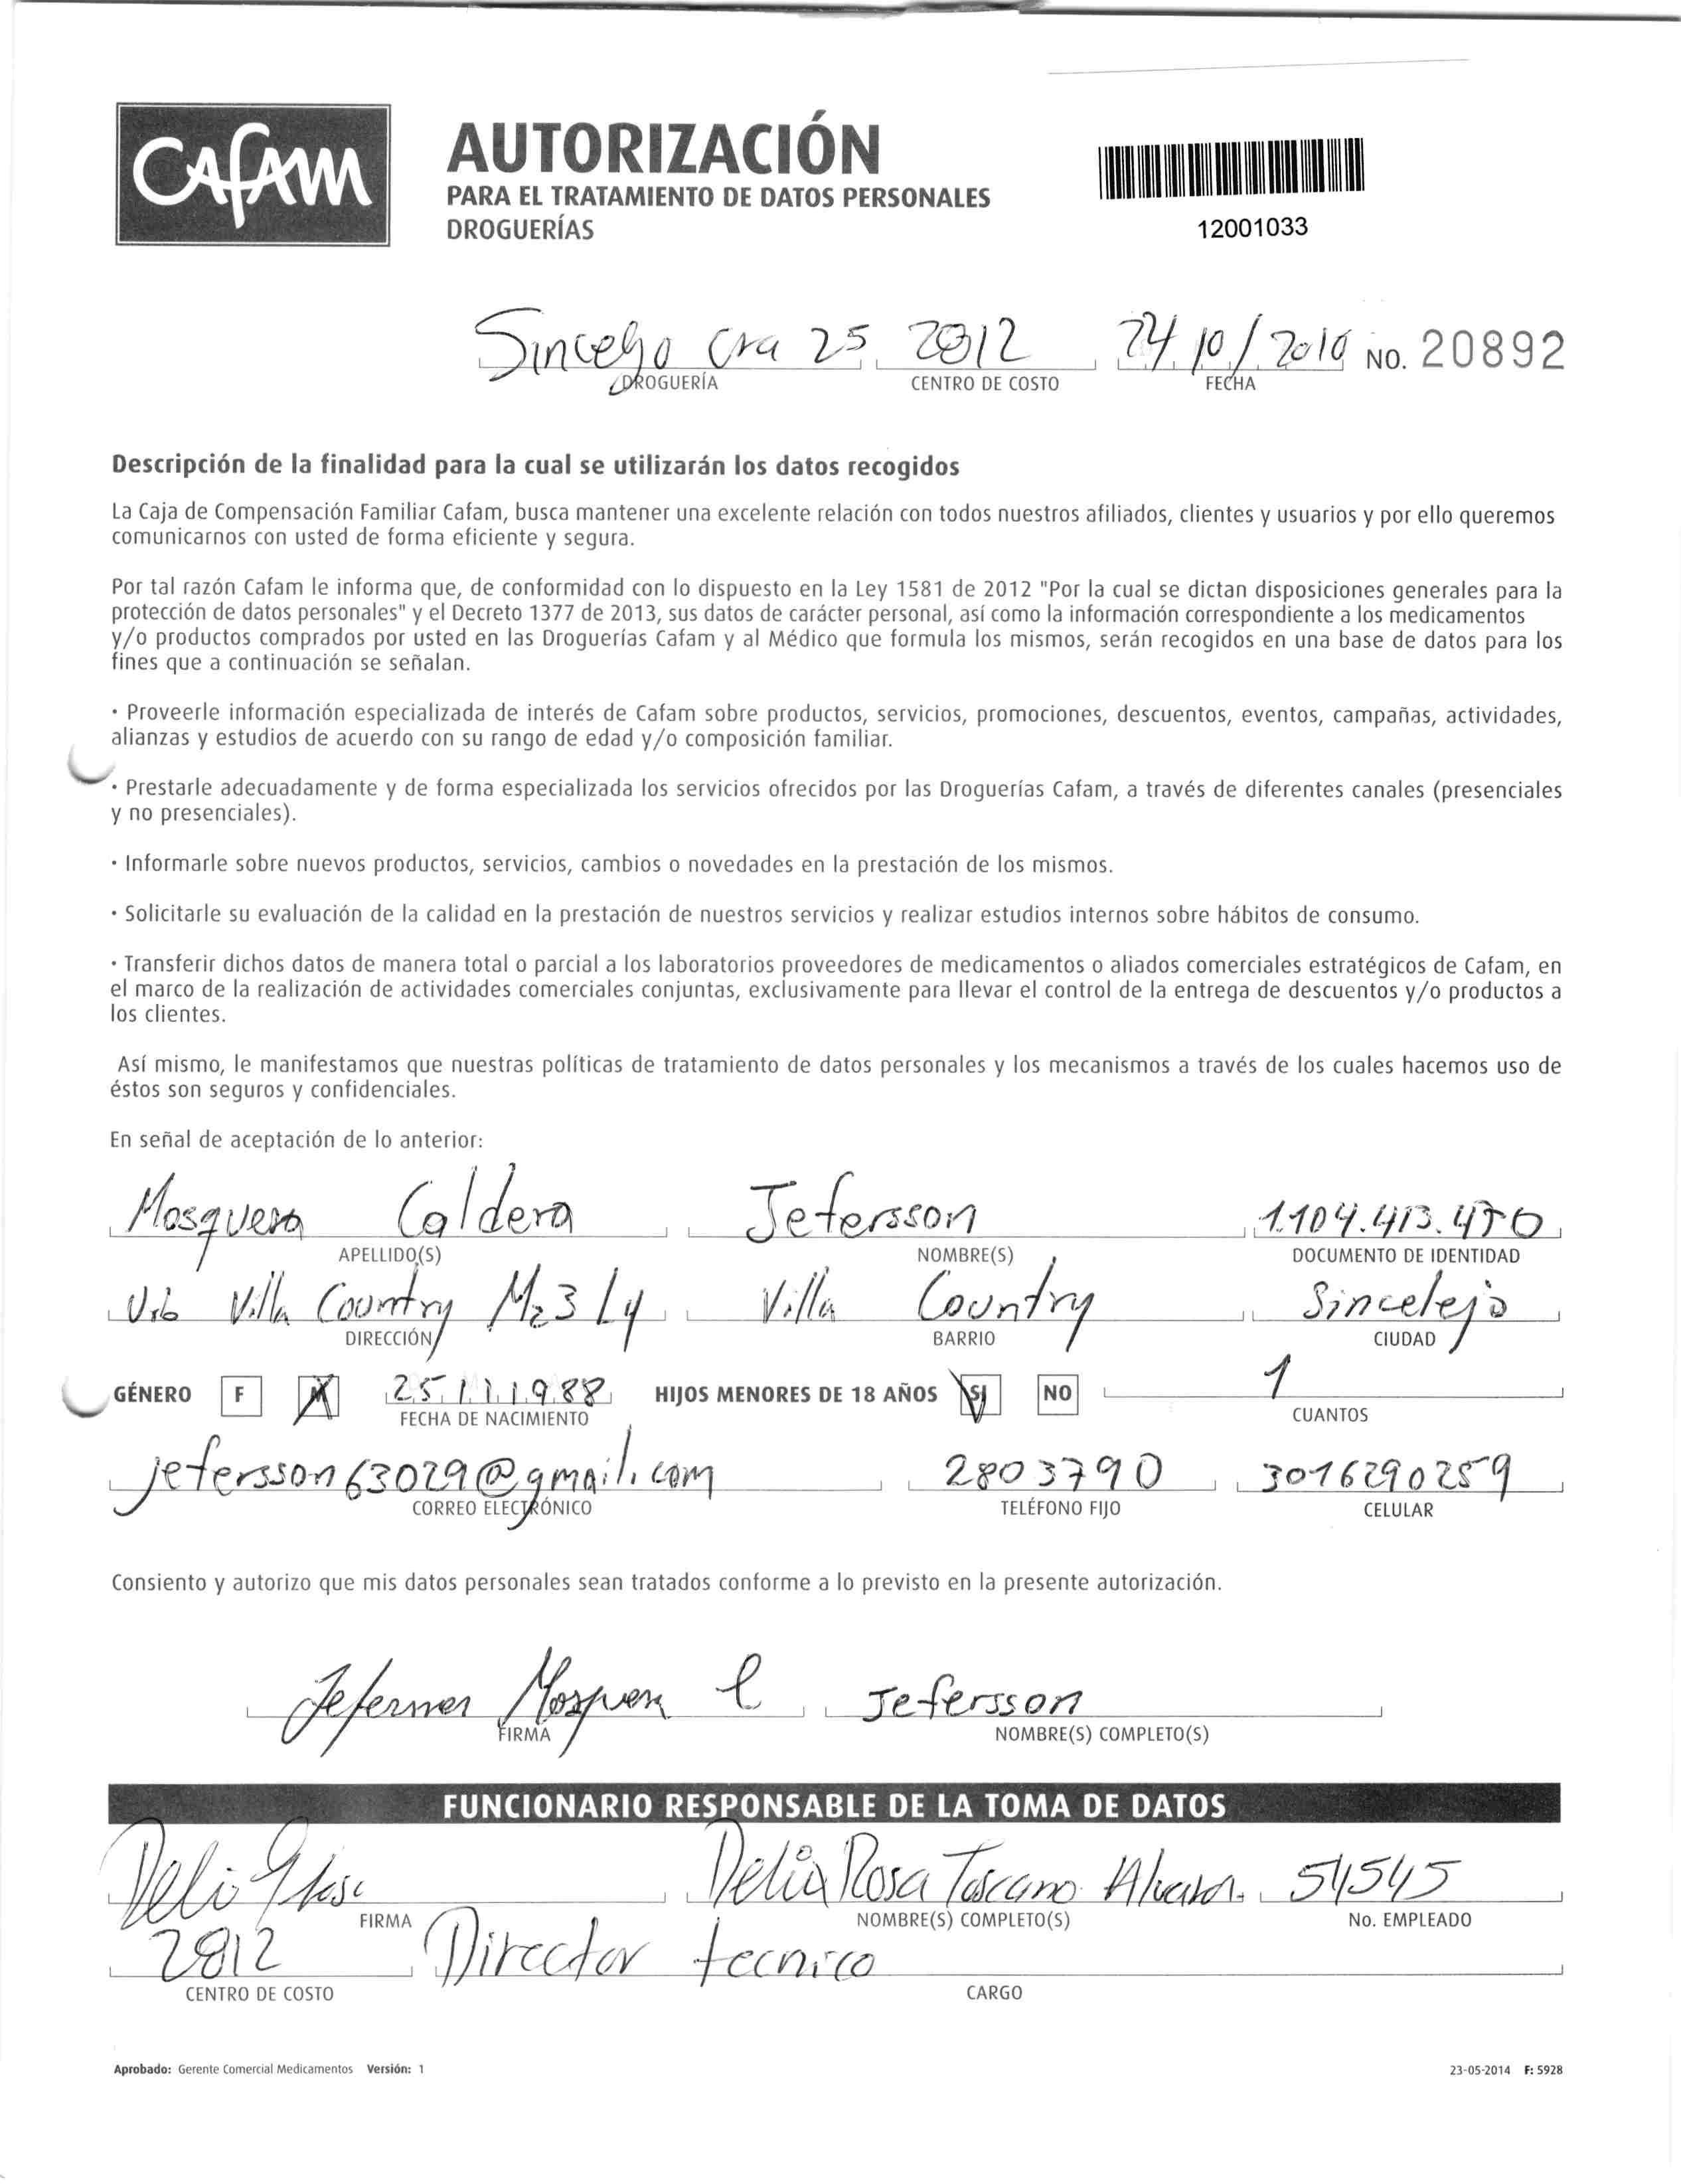 Cafam
AUTORIZACIÓN
PARA EL TRATAMIENTO DE DATOS PERSONALES
DROGUERÍAS
12001033
Sincelejo cra 25 2812 24/10/2016 NO. 20892
DROGUERÍA CENTRO DE COSTO FECHA
Descripción de la finalidad para la cual se utilizarán los datos recogidos
La Caja de Compensación Familiar Cafam, busca mantener una excelente relación con todos nuestros afiliados, clientes y usuarios y por ello queremos
comunicarnos con usted de forma eficiente y segura.
Por tal razón Cafam le informa que, de conformidad con lo dispuesto en la Ley 1581 de 2012 "Por la cual se dictan disposiciones generales para la
protección de datos personales" y el Decreto 1377 de 2013, sus datos de carácter personal, así como la información correspondiente a los medicamentos
y/o productos comprados por usted en las Droguerías Cafam y al Médico que formula los mismos, serán recogidos en una base de datos para los
fines que a continuación se señalan.
· Proveerle información especializada de interés de Cafam sobre productos, servicios, promociones, descuentos, eventos, campañas, actividades,
alianzas y estudios de acuerdo con su rango de edad y/o composición familiar.
· Prestarle adecuadamente y de forma especializada los servicios ofrecidos por las Droguerías Cafam, a través de diferentes canales (presenciales
y no presenciales).
· Informarle sobre nuevos productos, servicios, cambios o novedades en la prestación de los mismos.
· Solicitarle su evaluación de la calidad en la prestación de nuestros servicios y realizar estudios internos sobre hábitos de consumo.
· Transferir dichos datos de manera total o parcial a los laboratorios proveedores de medicamentos o aliados comerciales estratégicos de Cafam, en
el marco de la realización de actividades comerciales conjuntas, exclusivamente para llevar el control de la entrega de descuentos y/o productos a
los clientes.
Así mismo, le manifestamos que nuestras políticas de tratamiento de datos personales y los mecanismos a través de los cuales hacemos uso de
éstos son seguros y confidenciales.
En señal de aceptación de lo anterior:
Mosquera Caldera Jefersson 1.104.413.470
APELLIDO(S) NOMBRE(S) DOCUMENTO DE IDENTIDAD
Urb Villa Country Mz 3 L4 Villa Country Sincelejo
DIRECCIÓN BARRIO CIUDAD
GÉNERO F M 25 11 1988 HIJOS MENORES DE 18 AÑOS SI NO 1
FECHA DE NACIMIENTO CUANTOS
jefersson63029@gmail.com 2803790 3016290259
CORREO ELECTRÓNICO TELÉFONO FIJO CELULAR
Consiento y autorizo que mis datos personales sean tratados conforme a lo previsto en la presente autorización.
Mosquera C Jefersson
FIRMA NOMBRE(S) COMPLETO(S)
FUNCIONARIO RESPONSABLE DE LA TOMA DE DATOS
Delia Rosa Toscano 54545
FIRMA NOMBRE(S) COMPLETO(S) No. EMPLEADO
2812 Director tecnico
CENTRO DE COSTO CARGO
Aprobado: Gerente Comercial Medicamentos Versión: 1 23-05-2014 F: 5928